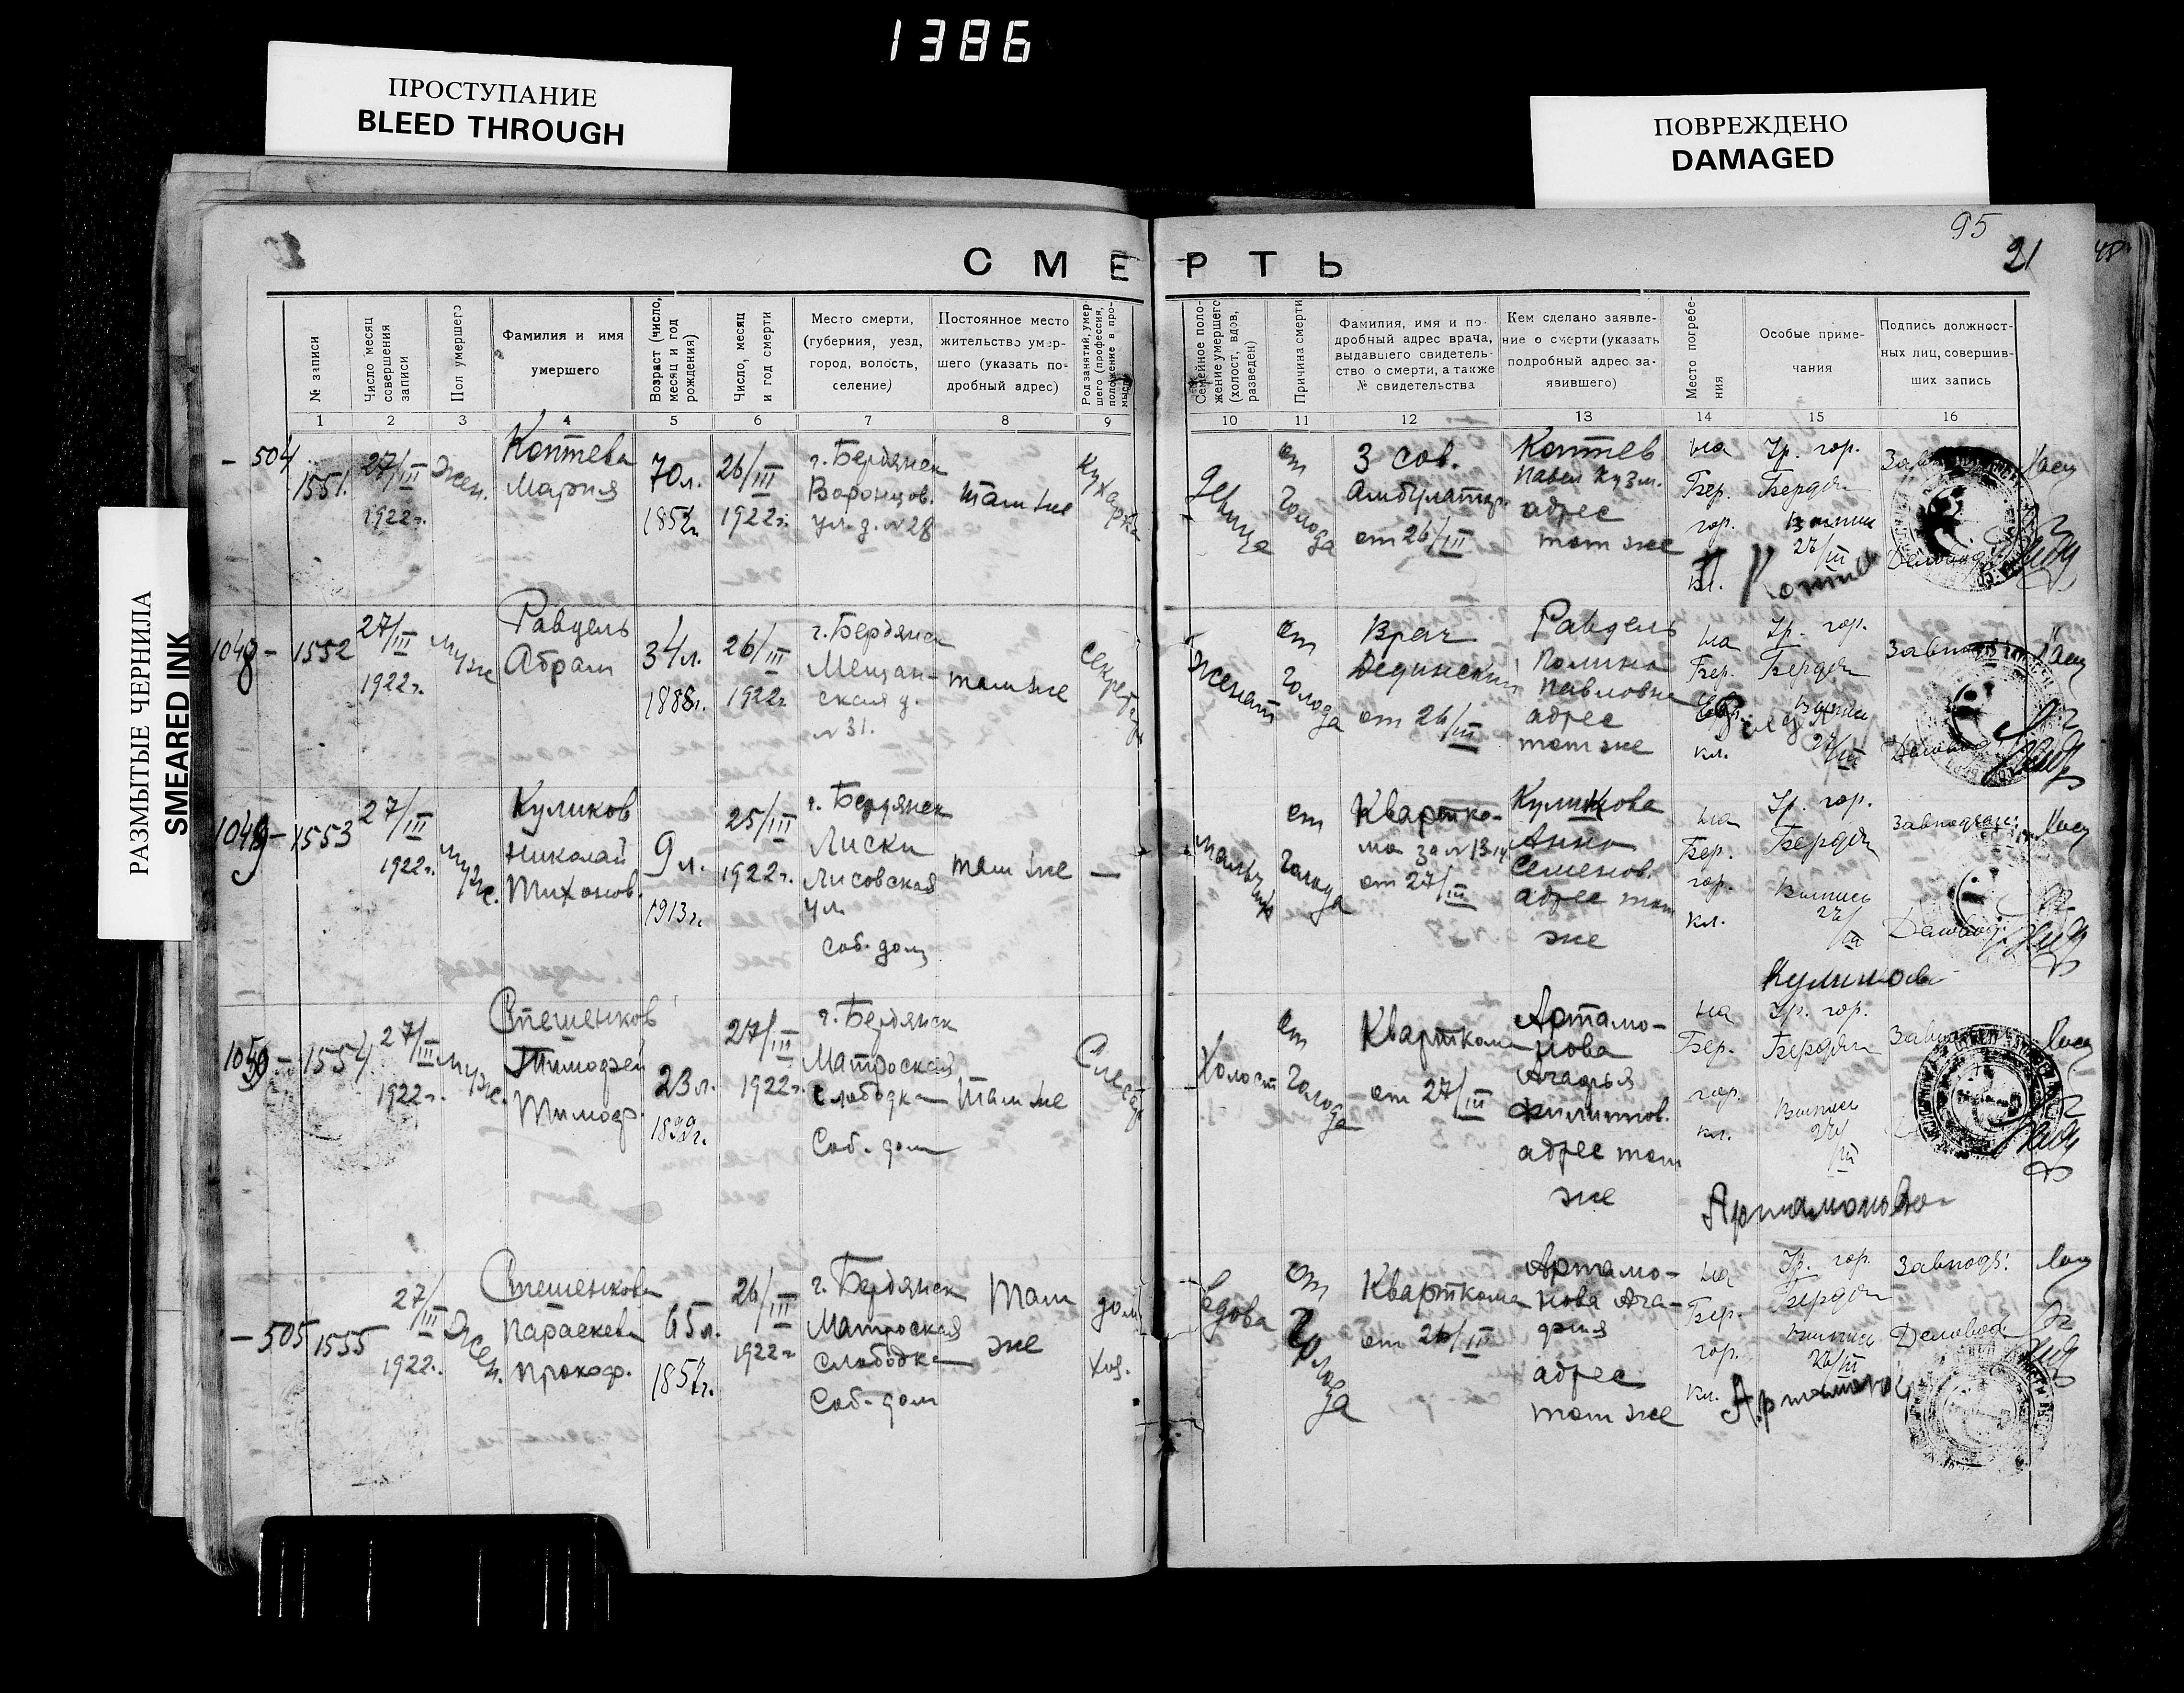 1386
ПРОСТУПАНИЕ
BLEED THROUGH
ПОВРЕЖДЕНО
DAMAGED
РАЗМЫТЫЕ ЧЕРНИЛА
SMEARED INK
95
21
48
СМЕРТЬ
№ записи
Число месяц совершения записи
Пол умершего
Фамилия и имя
умершего
Возраст (число, месяц и год рождения)
Число, месяц и год смерти
Место смерти,
(губерния, уезд,
город, волость,
селение)
Постоянное место
жительство умер-
шего (указать по-
дробный адрес)
Род занятий, умер-
шего (профессия,
положение в про-
Семейное поло-
жение умершего
(холост, вдов,
разведен)
Причина смерти
Фамилия, имя и по-
дробный адрес врача,
выдавшего свидетель-
ство о смерти, а также
№ свидетельства
Кем сделано заявле-
ние о смерти (указать
подробный адрес за-
явившего)
Место погребе-
ния
Особые приме-
чания
Подпись должност-
ных лиц, совершив-
ших запись
1 2 3 4 5 6 7 8 9 10 11 12 13 14 15 16
- 504
1551.
27/III
1922г.
жен.
Коптева
Мария
70л.
1852г
26/III
1922г.
г. Бердянск
Воронцов.
ул. д. №28
там же
Кухарка
девица
от
голода
3 сов.
Амбулатор.
от 26/III
Коптев
Павел Кузм.
адрес
тот же
на
Бер.
гор.
кл.
Гр. гор.
Бердян
Выпись
27/III
1048 - 1552
27/III
1922г.
муж
Равдель
Абрам
34л.
1888г.
26/III
1922г
г. Бердянск
Мещан-
ская д.
№31.
там же
секретарь
женат
от
голода
Врач
Дединский
от 26/III
Равдель
Полина
Павловна
адрес
тот же
на
Бер.
Евр.
кл.
Гр. гор.
Бердян
Выпись
27/III
1049 - 1553
27/III
1922г.
муж.
Куликов
Николай
Тихонов.
9л.
1913г.
25/III
1922г.
г. Бердянск
Лиски
Лисовская
ул.
соб. дом
там же
—
мальчик
от
голода
Квартко-
ма за №1314
от 27/III
Куликова
Анна
Семенов.
адрес тот
же
на
Бер.
гор.
кл.
Гр. гор.
Бердян
Выпись
27/III
Куликова
1050 - 1554
27/III
1922г.
муж.
Стешенков
Тимофей
Тимоф.
23л.
1899г.
27/III
1922г.
г. Бердянск
Матроская
Слободка
Соб. дом
там же
Слесарь
Холост
от
голода
Кварткома
от 27/III
Артамо-
нова
Агафья
Филиппов.
адрес тот
же
на
Бер.
гор.
кл.
Гр. гор.
Бердян
Выпись
27/III
Артамонова
- 505
1555
27/III
1922г.
жен.
Стешенкова
Параскева
Прокоф.
65л.
1857г.
26/III
1922г
г. Бердянск
Матроская
слободка
Соб. дом
там
же
дом.
хоз.
Вдова
от
голода
Кварткома
от 26/III
Артамо-
нова Ага-
фия
адрес
тот же
на
Бер.
гор.
кл.
Гр. гор.
Бердян
Выпись
Завподз:
Деловод.
Артамонова